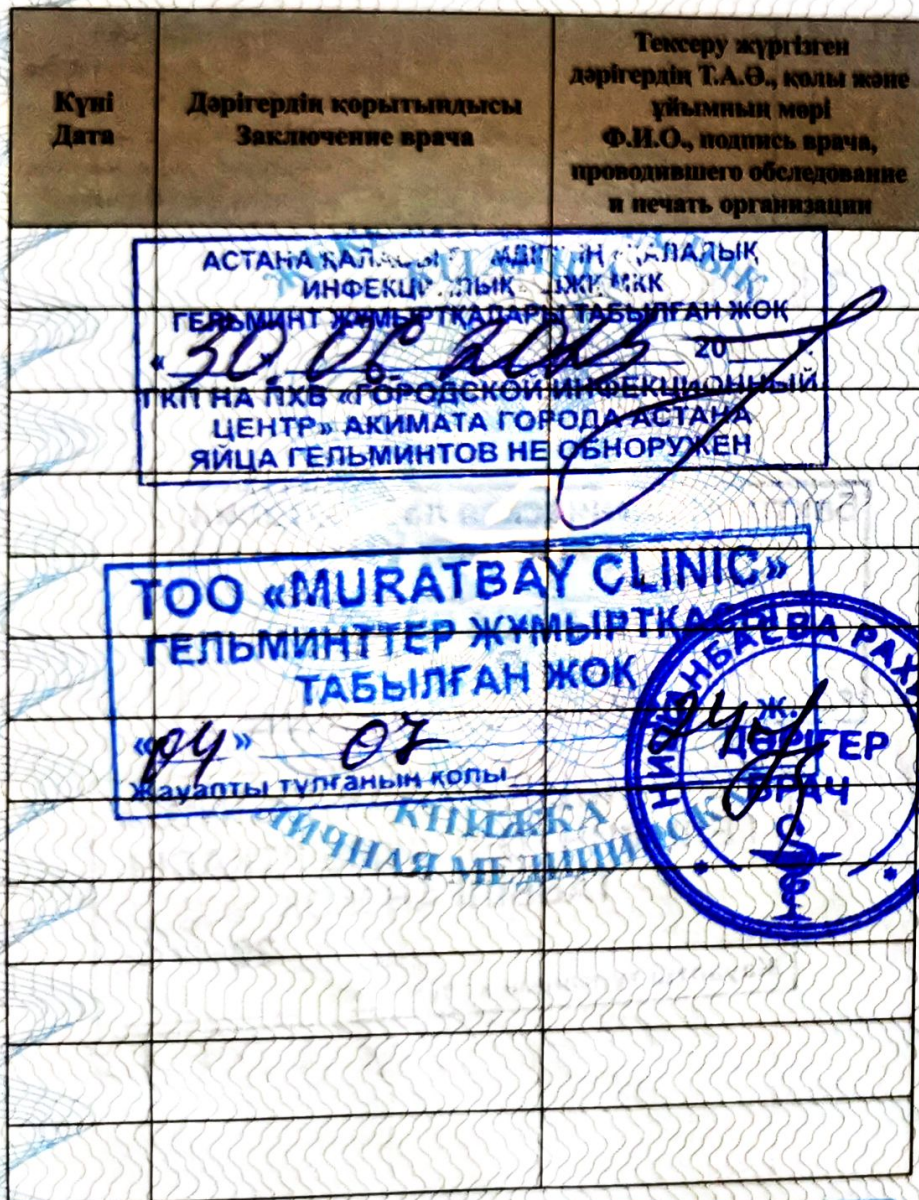 Күні
Дата
Дәрігердің қорытындысы
Заключение врача
Тексеру жүргізген
дәрігердің Т.А.Ә., қолы және
ұйымның мөрі
Ф.И.О., подпись врача,
проводившего обследование
и печать организации
АСТАНА
ГЕЛЬМИНТ ЖҰМЫРТҚАЛАРЫ ТАБЫЛҒАН ЖОҚ
«30 20
ГКП НА ПХВ «ГОРОДСКОЙ ИНФЕКЦИОННЫЙ
ЦЕНТР» АКИМАТА ГОРОДА АСТАНА
ЯЙЦА ГЕЛЬМИНТОВ НЕ ОБНОРУЖЕН
ТОО «MURATBAY CLINIC»
ГЕЛЬМИНТТЕР ЖҰМЫРТҚАСЫ
ТАБЫЛҒАН ЖОҚ
«04» 07 24 ж.
Жауапты тұлғаның қолы
ДӘРІГЕР
ВРАЧ
КНИЖКА
ЛИЧНАЯ МЕДИЦИНСКАЯ